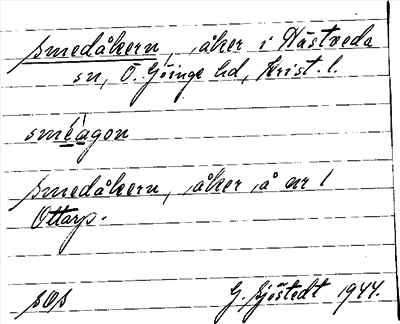 smedåkern, åker i Hästveda
sn, Ö. Göinge hd, Krist. l.
sméagon
smedåkern, åker å nr 1
Ottarp.
sOs G. Sjöstedt 1944.